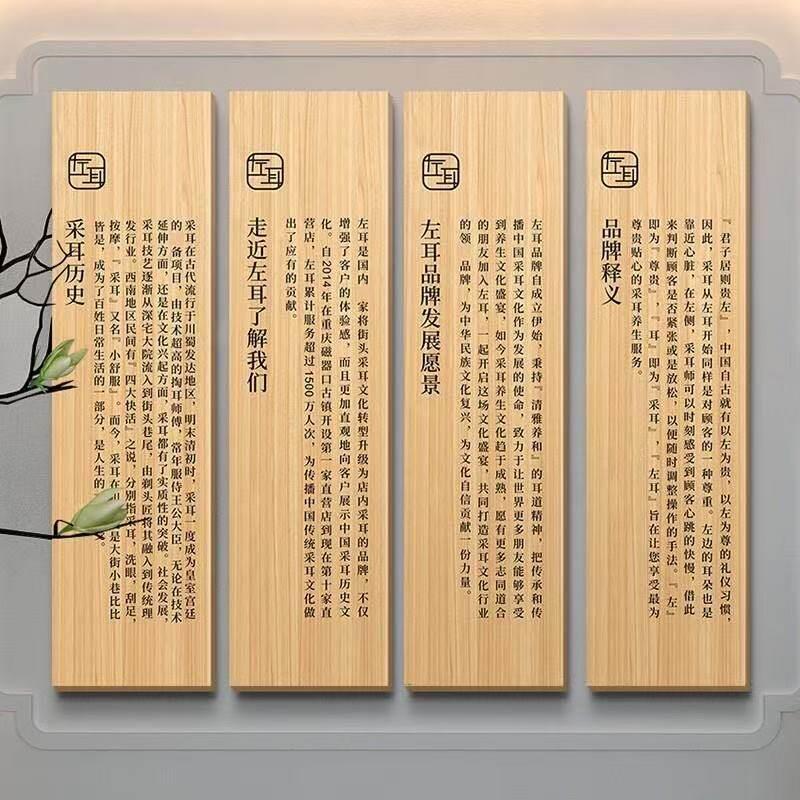 左耳
采耳历史
采耳在古代流行于川蜀发达地区，明末清初时，采耳一度成为皇室宫廷
的 备项目，由技术超高的掏耳师傅，常年服侍王公大臣，无论在技术
延伸方面，还是在文化兴起方面，采耳都有了实质性的突破。社会发展，
采耳技艺逐渐从深宅大院流入到街头巷尾，由剃头匠将其融入到传统理
发行业。西南地区民间有『四大快活』之说，分别指采耳，洗眼，刮足，
按摩，『采耳』又名『小舒服』。而今，采耳在 是大街小巷比比
皆是，成为了百姓日常生活的一部分，是人生的
左耳
走近左耳了解我们
左耳是国内 家将街头采耳文化转型升级为店内采耳的品牌，不仅
增强了客户的体验感，而且更加直观地向客户展示中国采耳历史文
化。自2014年在重庆磁器口古镇开设第一家直营店到现在第十家直
营店，左耳累计服务超过1500万人次，为传播中国传统采耳文化做
出了应有的贡献。
左耳
左耳品牌发展愿景
左耳品牌自成立伊始，秉持『清雅养和』的耳道精神，把传承和传
播中国采耳文化作为发展的使命，致力于让世界更多朋友能够享受
到养生文化盛宴，如今采耳养生文化趋于成熟，愿有更多志同道合
的朋友加入左耳，一起开启这场文化盛宴，共同打造采耳文化行业
的领 品牌，为中华民族文化复兴，为文化自信贡献一份力量。
左耳
品牌释义
『君子居则贵左』，中国自古就有以左为贵，以左为尊的礼仪习惯，
因此，采耳从左耳开始同样是对顾客的一种尊重。左边的耳朵也是
靠近心脏，在左侧，采耳师可以时刻感受到顾客心跳的快慢，借此
来判断顾客是否紧张或是放松，以便随时调整操作的手法。『左』
即为『尊贵』，『耳』即为『采耳』，『左耳』旨在让您享受最为
尊贵贴心的采耳养生服务。